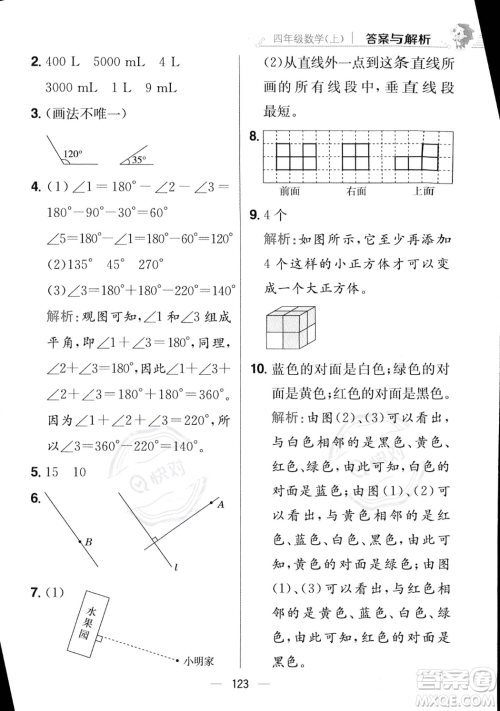 四年级数学(上) 答案与解析
400 L 5000 mL 4 L
3000 mL 9 L
3. (画法不唯一)
120° 35°
4. (1) ∠1=180°-∠2-∠3
∠5=180°-∠2 ∠2
(2)135° 45°
(3)∠3=180°+180°-220°=140°
解析:观图可知,∠1+∠3组成
平角,即∠1+∠3=180°,同理,
∠2+∠3=180°,因此∠1+∠3+
∠2+∠3=180°+180°,∠1+∠2
+∠3=220°,所以220°+∠3=
360° ∠3=360°-220°=140°。
5. 15 10
6.
A
B
l
7. (1)
水果园
小明家
(2)从直线外一点到这条直线所
画的所有线段中,垂直线段
最短。
8.
前面 右面 上面
9. 4个
解析:如图所示,它至少再添加
4个这样的小正方体才可以变
成一个大正方体。
10. 蓝色的对面是白色;绿色的对面
是黄色;红色的对面是黑色。
解析:由图(1)、(3)可以看出,
与白色相邻的是黄色、黑色、
红色、绿色,所以白色的对面
是蓝色;由图(1)、(2)可以看
出,与黄色相邻的是黑色、白
色、蓝色、红色,所以黄色的对
面是绿色;由图(2)、(3)可以
看出,与红色相邻的是黄色、
蓝色、白色、绿色,所以红色的
对面是黑色。
123
快对